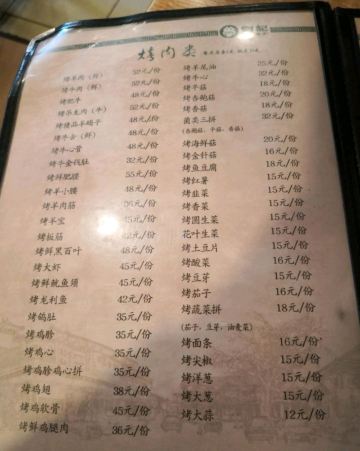 烤肉类
烤羊肉(鲜) 52元/份
烤牛肉(鲜) 52元/份
烤肥牛 48元/份
烤羊尾油 25元/份
烤牛心 32元/份
烤平菇 18元/份
烤杏鲍菇 20元/份
烤香菇 18元/份
菌类三拼 32元/份
(杏鲍菇、平菇、香菇)
烤牛心管 48元/份
烤牛金钱肚 32元/份
烤鲜肥腰 55元/份
烤羊小腰 48元/份
烤羊肉筋
烤羊宝 45元/份
烤板筋 42元/份
烤鲜黑百叶 48元/份
烤大虾 45元/份
烤鲜鱿鱼须 45元/份
烤龙利鱼 42元/份
烤鸽肚 35元/份
烤鸡胗 35元/份
烤鸡心 35元/份
烤鸡胗鸡心拼 35元/份
烤鸡翅 38元/份
烤鸡软骨 45元/份
烤鲜鸡腿肉 36元/份
烤海鲜菇 20元/份
烤金针菇 16元/份
烤鱼豆腐 18元/份
烤红薯 15元/份
烤韭菜 15元/份
烤香菜 15元/份
烤圆生菜 15元/份
花叶生菜 15元/份
烤土豆片 15元/份
烤酸菜 16元/份
烤豆芽 15元/份
烤茄子 16元/份
烤蔬菜拼 18元/份
(茄子、豆芽、油麦菜)
烤面条 16元/份
烤尖椒 15元/份
烤洋葱 15元/份
烤大葱 15元/份
烤大蒜 12元/份